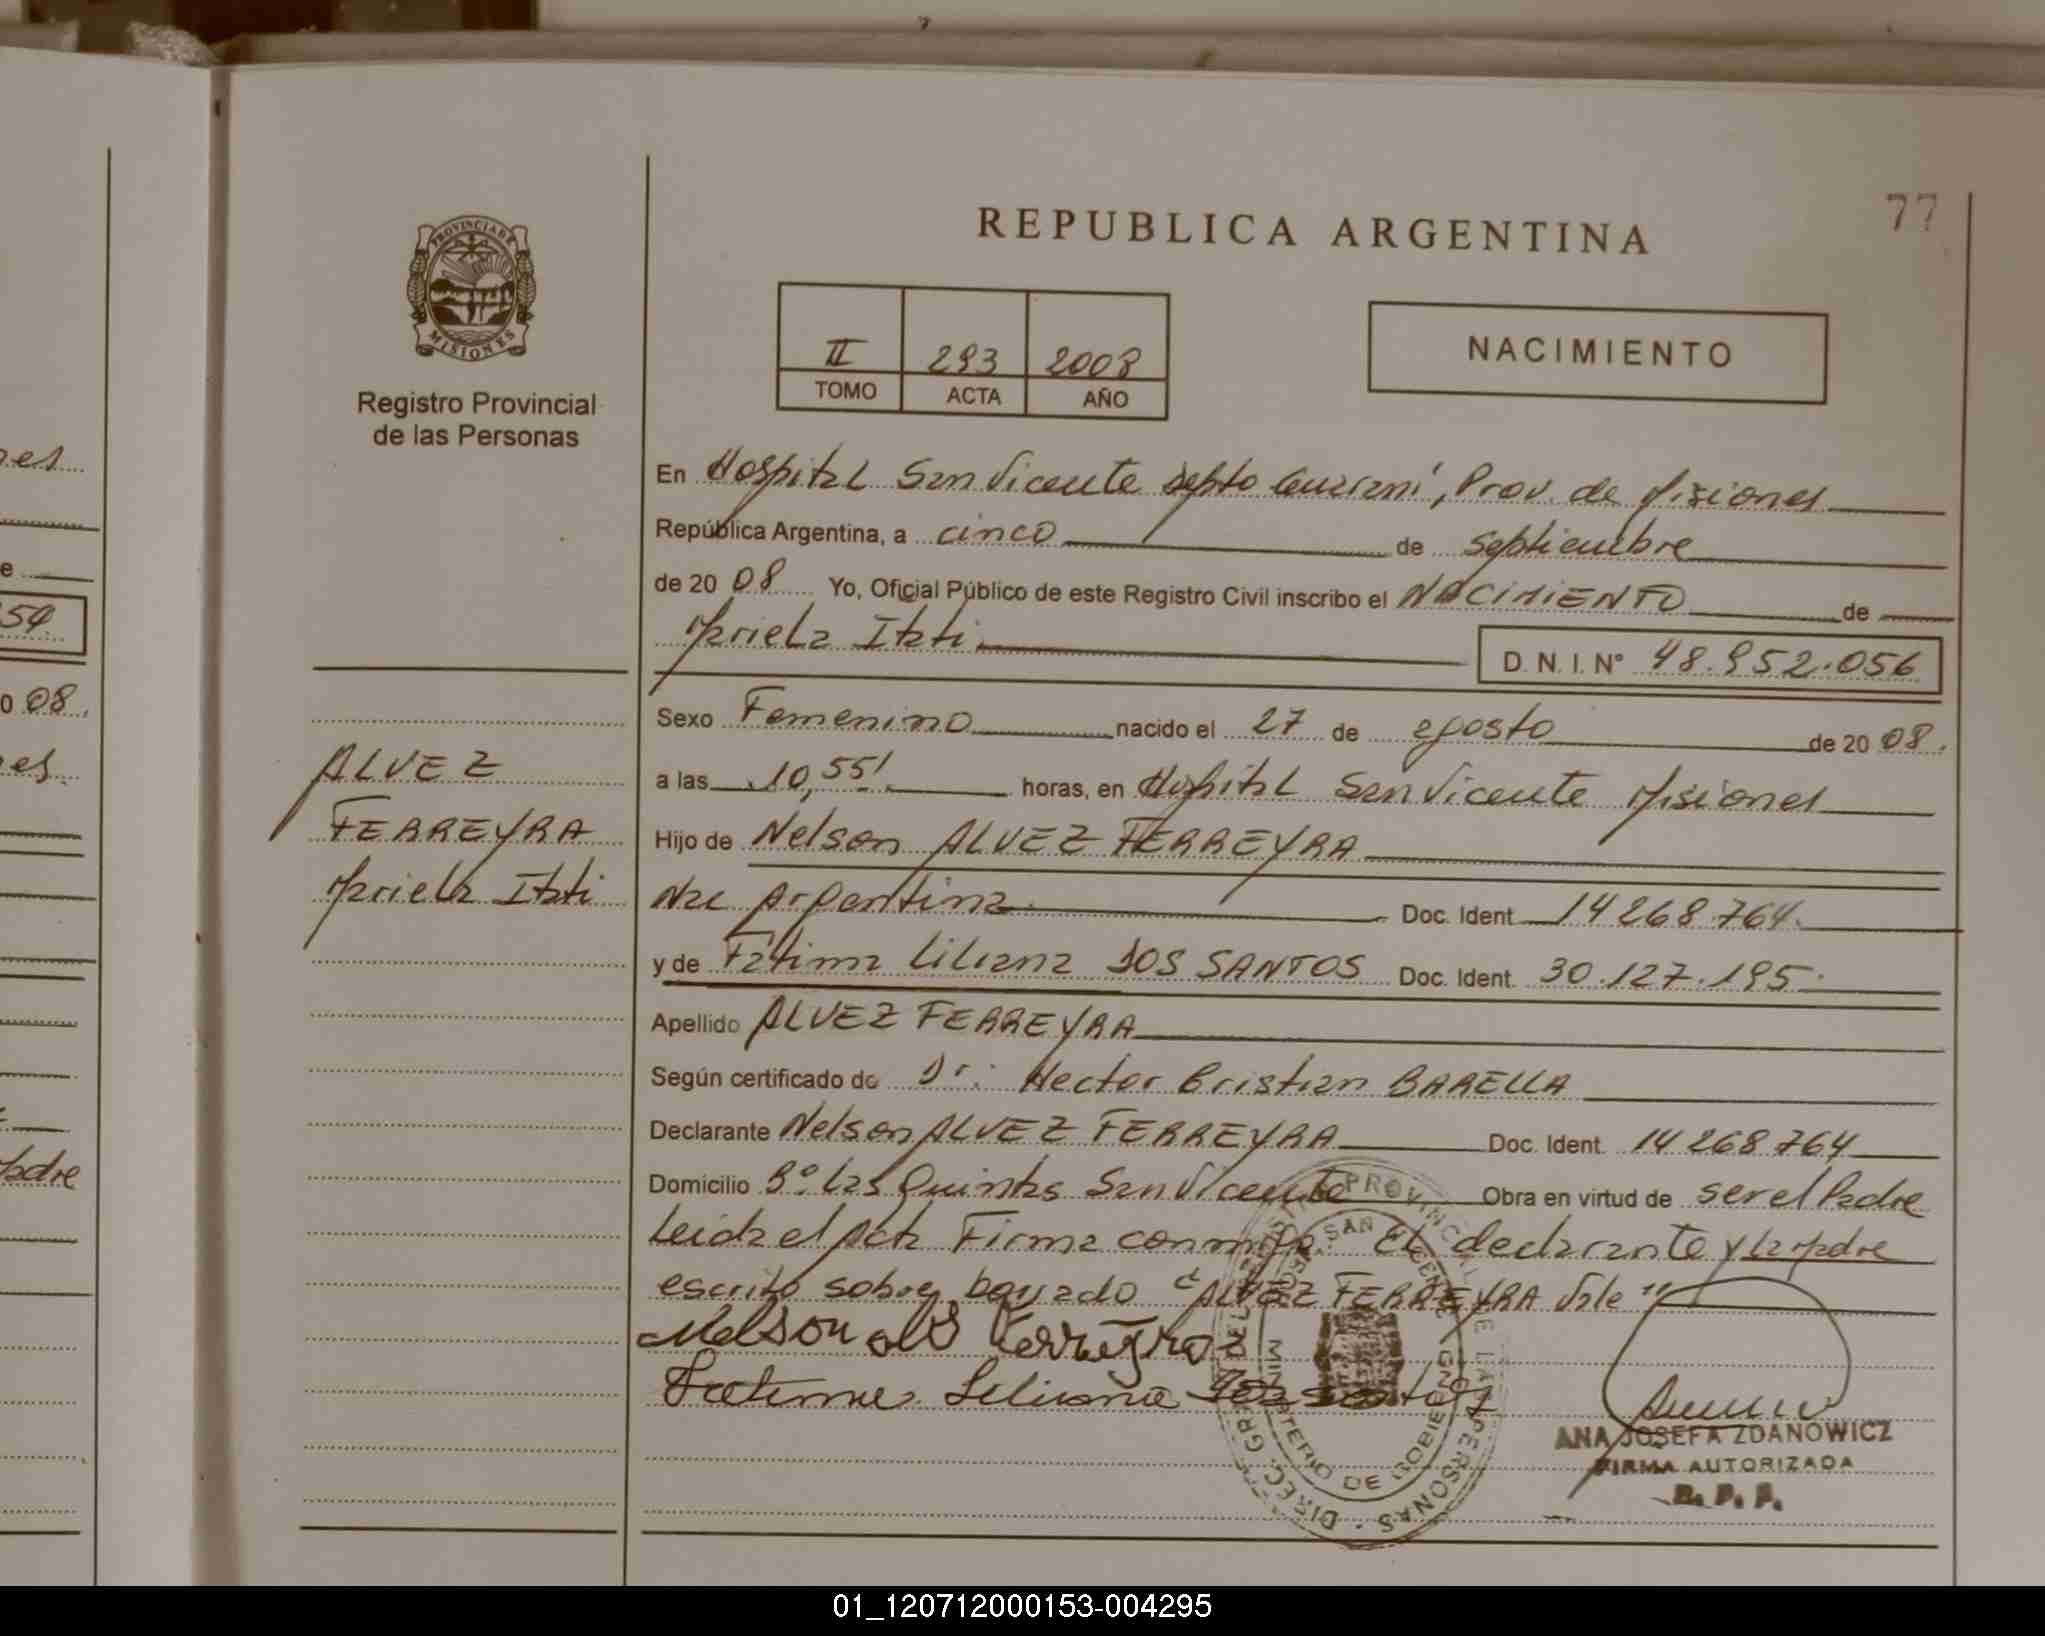 77
REPUBLICA ARGENTINA
PROVINCIA DE
MISIONES
Registro Provincial
de las Personas
II 293 2008
TOMO ACTA AÑO
NACIMIENTO
En Hospital San Vicente Depto Guaraní, Prov. de Misiones
República Argentina, a cinco de septiembre
de 20 08 Yo, Oficial Público de este Registro Civil inscribo el NACIMIENTO de
Mariela Itati
D. N. I. N° 48.952.056
Sexo Femenino nacido el 27 de agosto de 20 08.
a las 10,55' horas, en Hospital San Vicente Misiones
Hijo de Nelson ALVEZ FERREYRA
Nac Argentina Doc. Ident 14268.764.
y de Fátima Liliana DOS SANTOS Doc. Ident. 30.127.195.
Apellido ALVEZ FERREYRA
Según certificado de Dr: Hector Cristian BARELLA
Declarante Nelson ALVEZ FERREYRA Doc. Ident. 14268764
Domicilio Bº: Las Quintas San Vicente Obra en virtud de ser el Padre
Leida el Acta Firma conmigo: El declarante y la Madre
escrito sobre borrado "ALVEZ FERREYRA Vale"
Nelson als Ferreyra
Fatima Liliana Dos santos
ALVEZ
FERREYRA
Mariela Itati
ANA JOSEFA ZDANOWICZ
FIRMA AUTORIZADA
R. P. P.
DIREC. GRAL. DEL REGISTRO PROVINCIAL DE LAS PERSONAS
SAN VICENTE
MINISTERIO DE GOBIERNO
es
e
54
0 08.
es.
Madre
01_120712000153-004295